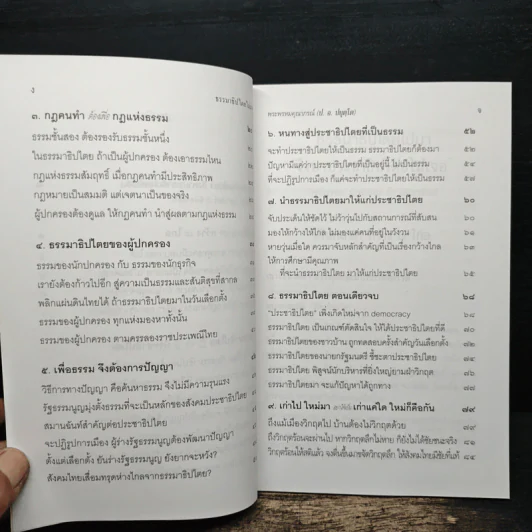 ง
๓. กฎคนทำ ต้องถึง กฎแห่งธรรม
ธรรมชั้นสอง ต้องรองรับธรรมชั้นหนึ่ง
ในธรรมาธิปไตย ถ้าเป็นผู้ปกครอง ต้องเอาธรรมไหน
กฎแห่งธรรมสัมฤทธิ์ เมื่อกฎคนทำมีประสิทธิภาพ
กฎหมายเป็นสมมติ แต่เจตนาเป็นของจริง
ผู้ปกครองต้องดูแล ให้กฎคนทำ นำสู่ผลตามกฎแห่งธรรม
๔. ธรรมาธิปไตยของผู้ปกครอง
ธรรมของนักปกครอง กับ ธรรมของนักธุรกิจ
เรายังต้องก้าวไปอีก สู่ความเป็นธรรมและสันติสุขที่สากล
พลิกแผ่นดินไทยได้ ถ้าธรรมาธิปไตยมาในวันเลือกตั้ง
ธรรมของผู้ปกครอง ทุกแห่งมองหาทั้งนั้น
ธรรมของผู้ปกครอง ตามครรลองราชประเพณีไทย
๕. เพื่อธรรม จึงต้องการปัญญา
วิธีการทางปัญญา คือค้นหาธรรม จึงไม่มีความรุนแรง
รัฐธรรมนูญมุ่งตั้งธรรมที่จะเป็นหลักของสังคมประชาธิปไตย
สมานฉันท์สำคัญต่อประชาธิปไตย
จะปฏิรูปการเมือง ผู้ร่างรัฐธรรมนูญต้องพัฒนาปัญญา
ตั้งแต่เลือกตั้ง ยันร่างรัฐธรรมนูญ ยังยากจะหวัง?
สังคมไทยเสื่อมทรุดห่างไกลจากธรรมาธิปไตย?
พระพรหมคุณาภรณ์ (ป. อ. ปยุตฺโต)
๖. หนทางสู่ประชาธิปไตยที่เป็นธรรม ๕๒
จะทำประชาธิปไตยให้เป็นธรรม ธรรมาธิปไตยก็ต้องมา ๕๒
ปัญหามีแค่ว่า ประชาธิปไตยที่เป็นอยู่นี้ ไม่เป็นธรรม ๕๔
ที่จะปฏิรูปการเมือง ก็แค่จะทำประชาธิปไตยให้เป็นธรรม ๕๗
๗. นำธรรมาธิปไตยมาให้แก่ประชาธิปไตย
จับประเด็นให้ชัดไว้ ไม่ว้าวุ่นไปกับสถานการณ์ที่สับสน
มองให้กว้างให้ไกล ไม่มองแค่คนที่อยู่ในวังวน
หายวุ่นเมื่อใด ควรมาจับหลักสำคัญที่เป็นเรื่องกว้างไกล
ให้การศึกษามีคุณภาพ
ที่จะนำธรรมาธิปไตย มาให้แก่ประชาธิปไตย ๖๕
๘. ธรรมาธิปไตย ตอนเดียวจบ
"ประชาธิปไตย" เพิ่งเกิดใหม่จาก democracy
ธรรมาธิปไตย เป็นเกณฑ์ตัดสินใจ ให้ได้ประชาธิปไตยที่ดี
ธรรมาธิปไตยของชาวบ้าน ถูกทดสอบครั้งสำคัญวันเลือกตั้ง
ธรรมาธิปไตยของนายกรัฐมนตรี ชี้ชะตาประชาธิปไตย
ธรรมาธิปไตย พิสูจน์นักบริหารที่ยิ่งใหญ่ยามฝ่าวิกฤต
ธรรมาธิปไตยมา จะแก้ปัญหาได้ถูกทาง
๙. เก่าไป ใหม่มา เก่าแค่ใด ใหม่ก็คือกัน ๗๙
ถึงแม้เมืองวิกฤตไป บ้านต้องไม่วิกฤตด้วย ๗๙
ถึงวิกฤตร้อนจะผ่านไป หากวิกฤตลึกไม่หาย ก็ยังไม่ได้ชัยชนะจริง
วิกฤตร้อนให้สติแล้ว จงตื่นขึ้นมาขจัดวิกฤตลึก ให้สังคมไทยมีชัยที่แท้ ๘๔